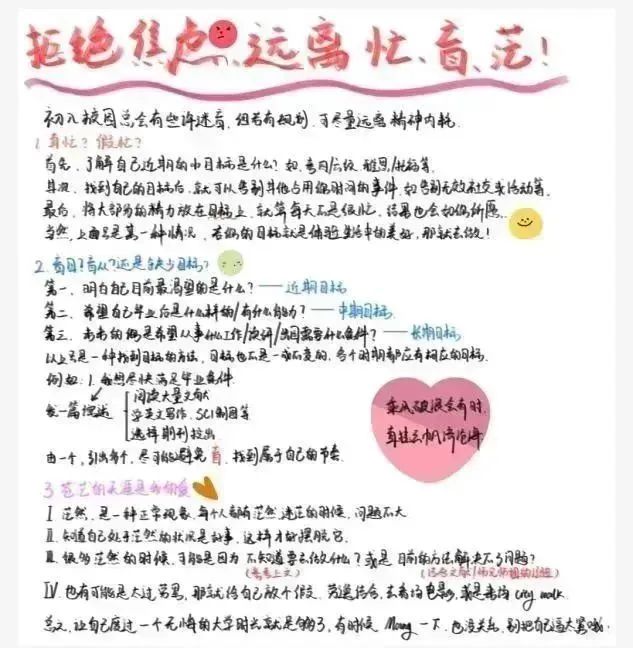 拒绝焦虑 远离忙、盲、茫！
初入校园总会有些许迷茫，但若有规划，可尽量远离精神内耗.
1. 真忙？假忙？
首先，了解自己近期的小目标是什么？如，考四/六级、雅思/托福等.
其次，找到自己的目标后，就可以告别其他占用你时间的事件，如告别无效社交或活动等.
最后，将大部分的精力放在目标上，就算每天不是很忙，结果也会如你所愿.
当然，上面只是某一种情况，若你的目标就是体验生活中的美好，那就去做！
2. 盲目？盲从？还是缺少目标？
第一、明白自己目前最渴望的是什么？——近期目标
第二、希望自己毕业后是什么样的/有什么能力？——中期目标
第三、未来的你是希望从事什么工作/读研/出国需要什么条件？——长期目标
以上只是一种找到目标的方法，目标也不是一成不变的，每个时期都应有相应的目标.
例如：1. 我想尽快满足毕业条件
发一篇综述
阅读大量文献
学英文写作、SCI制图等
选择期刊投出
由一个，引出多个，尽可能避免盲，找到属于自己的节奏.
乘风破浪会有时
直挂云帆济沧海
3. 茫茫的天涯是我的爱
I. 茫然，是一种正常现象，每个人都有茫然迷茫的时候，问题不大
II. 知道自己处于茫然的状况是好事，这样才好摆脱它.
III. 很多茫然的时候，可能是因为 不知道要去做什么？或是 目前的方法解决不了问题？
(参考上文)
IV. 也有可能是太过劳累，那就给自己放个假，劳逸结合，去看场电影，或是来场city walk.
总之，让自己度过一个无悔的大学时光就是够了，有时候 一下，也没关系，别把自己逼太累哦.